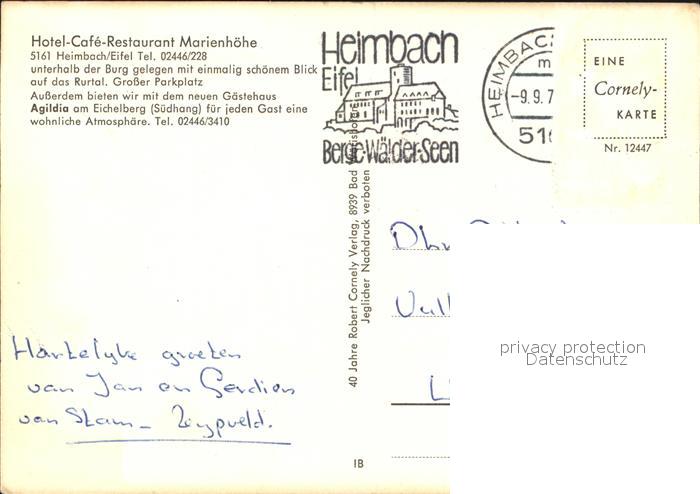 Hotel-Café-Restaurant Marienhöhe
5161 Heimbach/Eifel Tel. 02446/228
unterhalb der Burg gelegen mit einmalig schönem Blick
auf das Rurtal. Großer Parkplatz
Außerdem bieten wir mit dem neuen Gästehaus
Agildia am Eichelberg (Südhang) für jeden Gast eine
wohnliche Atmosphäre. Tel. 02446/3410
Heimbach
Eifel
Berge·Wälder·Seen
HEIMBACH
m
-9.9.7
516
EINE
Cornely-
KARTE
Nr. 12447
40 Jahre Robert Cornely Verlag, 8939 Bad
Jeglicher Nachdruck verboten
privacy protection
Datenschutz
Hartelyke groeten
van Jan en Gerdien
van Stam-
IB